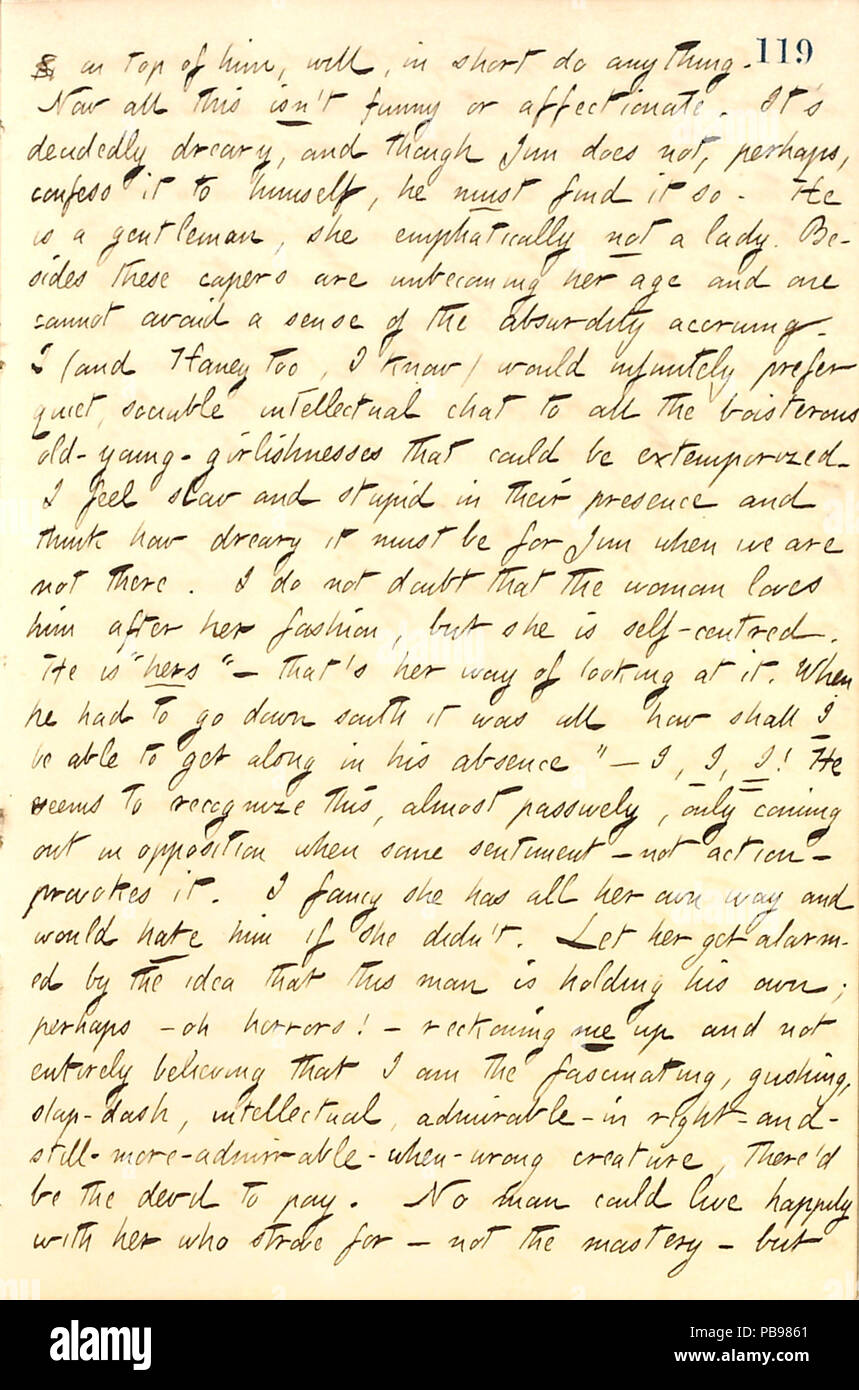 119
& on top of him, will, in short do anything.
Now all this isn't funny or affectionate. It's
decidedly dreary, and though Jim does not, perhaps,
confess it to himself, he must find it so. He
is a gentleman, she emphatically not a lady. Be-
sides these capers are unbecoming her age and one
cannot avoid a sense of the absurdity accruing.
I (and Haney too, I know) would infinitely prefer
quiet, sociable intellectual chat to all the boisterous
old-young-girlishnesses that could be extemporized.
I feel slow and stupid in their presence and
think how dreary it must be for Jim when we are
not there. I do not doubt that the woman loves
him after her fashion, but she is self-centred.
He is "hers" — that's her way of looking at it. When
he had to go down south it was all how shall I
be able to get along in his absence" — I, I, I! He
seems to recognize this, almost passively, only coming
out in opposition when some sentiment — not action —
provokes it. I fancy she has all her own way and
would hate him if she didn't. Let her get alarm-
ed by the idea that this man is holding his own;
perhaps — oh horrors! — reckoning me up and not
entirely believing that I am the fascinating, gushing,
slap-dash, intellectual, admirable-in right-and-
still-more-admirable-when-wrong creature, there'd
be the devil to pay. No man could live happily
with her who strove for — not the mastery — but
alamy
Image ID: PB9861
www.alamy.com